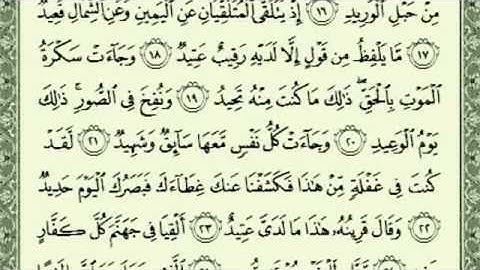 مِنْ حَبْلِ ٱلْوَرِيدِ ١٦ إِذْ يَتَلَقَّى ٱلْمُتَلَقِّيَانِ عَنِ ٱلْيَمِينِ وَعَنِ ٱلشِّمَالِ قَعِيدٌ
١٧ مَّا يَلْفِظُ مِن قَوْلٍ إِلَّا لَدَيْهِ رَقِيبٌ عَتِيدٌ ١٨ وَجَآءَتْ سَكْرَةُ
ٱلْمَوْتِ بِٱلْحَقِّ ۖ ذَٰلِكَ مَا كُنتَ مِنْهُ تَحِيدُ ١٩ وَنُفِخَ فِى ٱلصُّورِ ۚ ذَٰلِكَ
يَوْمُ ٱلْوَعِيدِ ٢٠ وَجَآءَتْ كُلُّ نَفْسٍ مَّعَهَا سَآئِقٌ وَشَهِيدٌ ٢١ لَّقَدْ
كُنتَ فِى غَفْلَةٍ مِّنْ هَٰذَا فَكَشَفْنَا عَنكَ غِطَآءَكَ فَبَصَرُكَ ٱلْيَوْمَ حَدِيدٌ
٢٢ وَقَالَ قَرِينُهُۥ هَٰذَا مَا لَدَىَّ عَتِيدٌ ٢٣ أَلْقِيَا فِى جَهَنَّمَ كُلَّ كَفَّارٍ